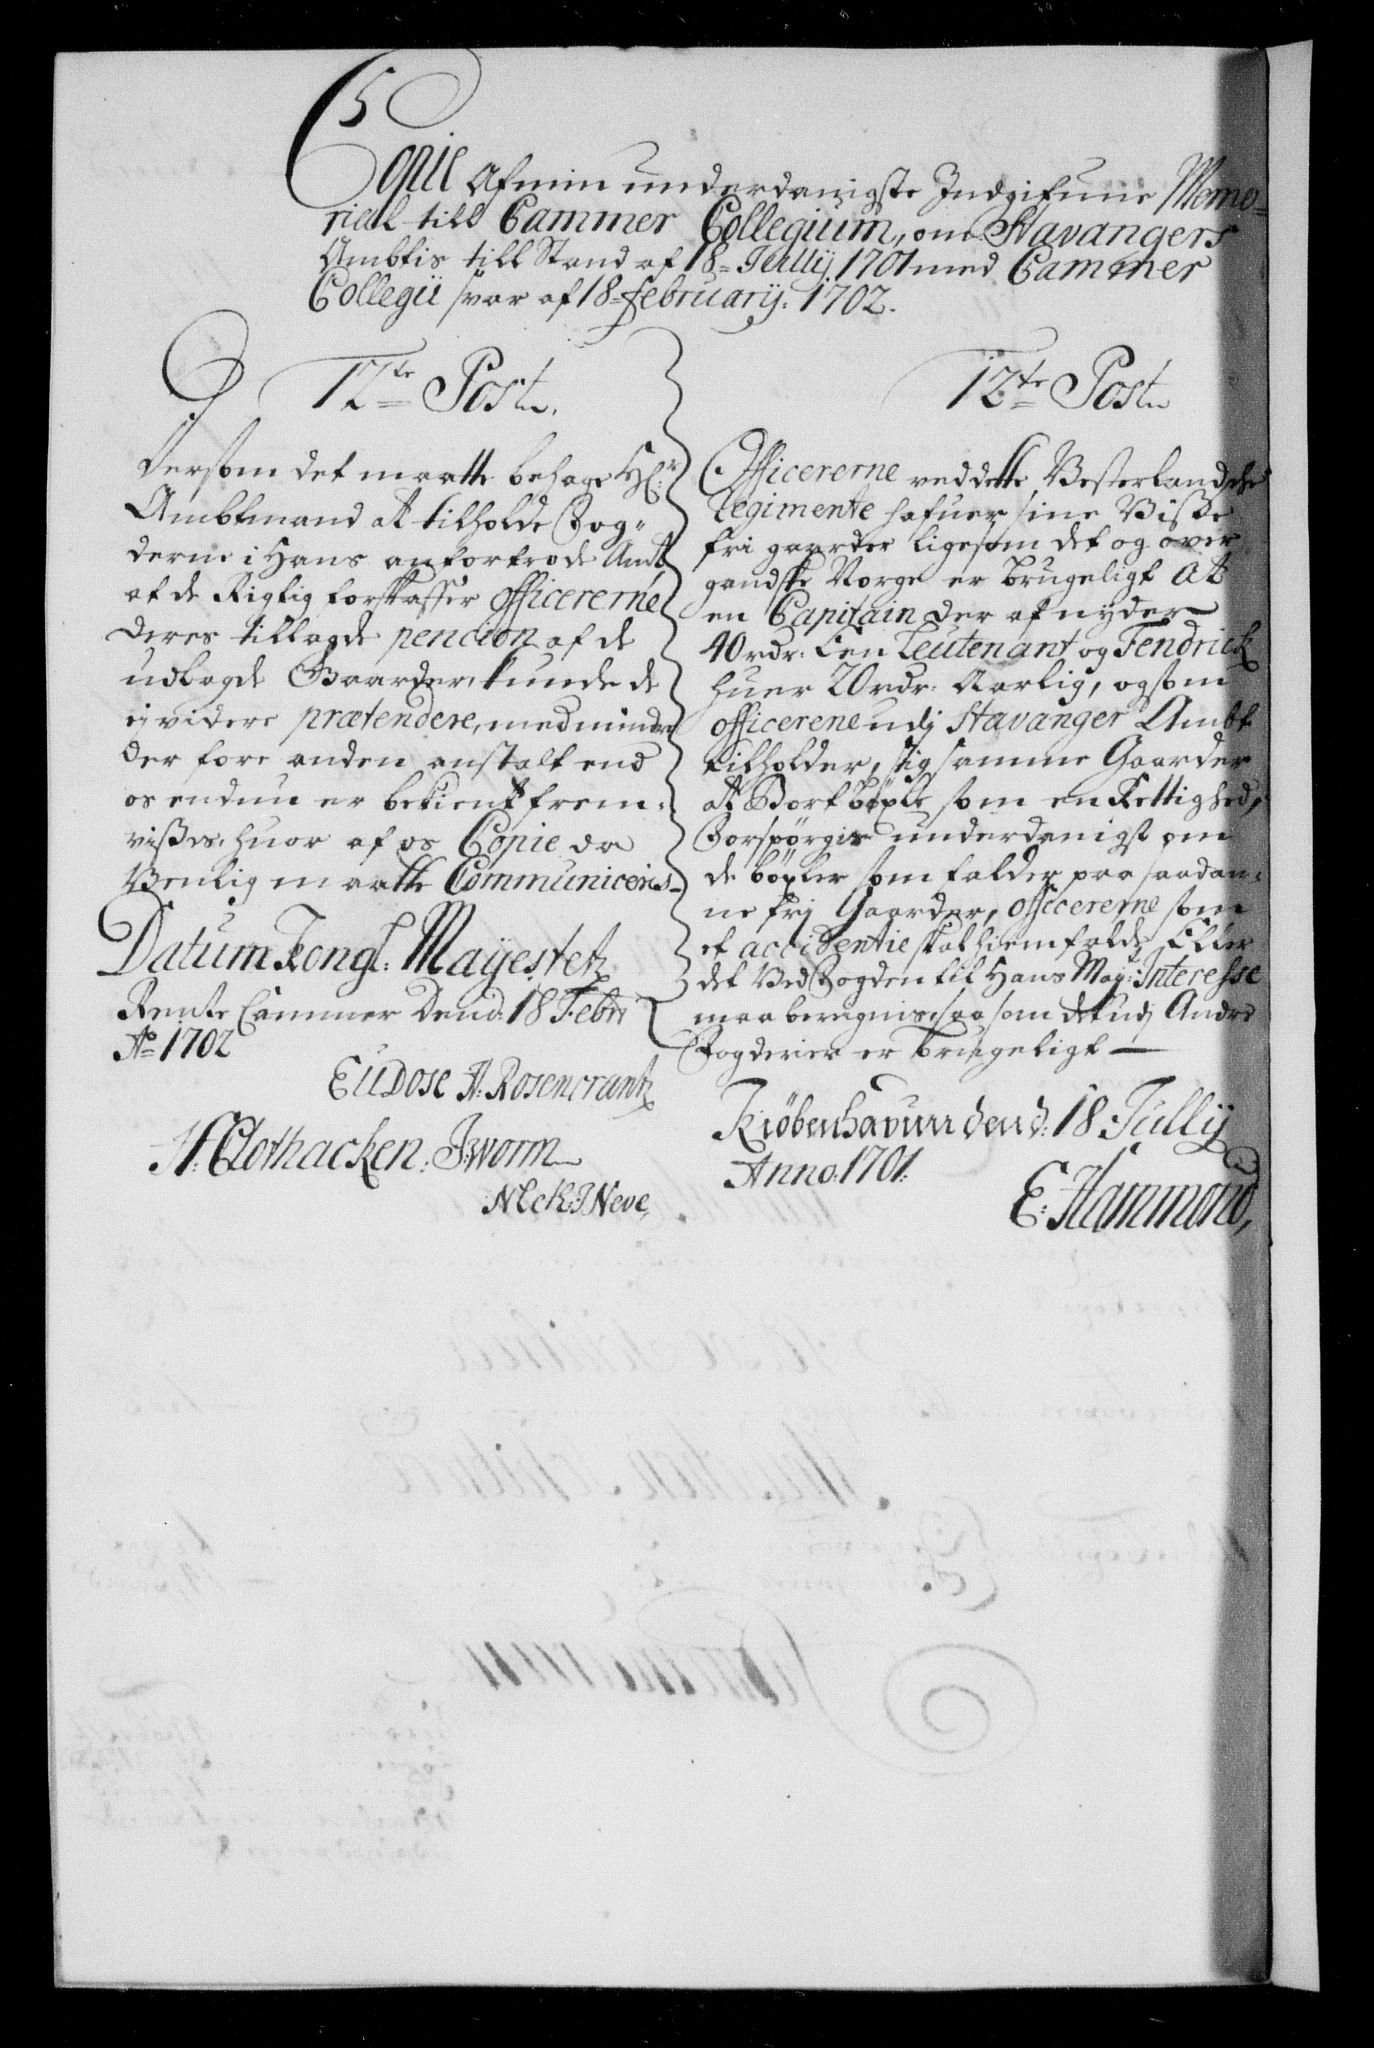 Copie Af min underdanigste Indgifune Memo-
rial till Cammer Collegium, om Stavangers
Ambtis till Stand af 18 Jullij 1701 med Cammer
Collegii svar af 18 February: 1702.
12te Post.
Dersom det maatte behage Hr:
Ambtmand at tilholde Fog-
derne i Hans anfortrode Amt,
at de Rigtig forskaffer officererne
deres tillagde pencion af de
udlagde Gaarder, kunde de
ej videre prætendere, medmindre
der fore anden anstalt end
os endnu er bekient frem-
vises, huor af os Copie da
Venlig maatte Communiceris
Datum Kongl: Mayestetz
Rente Cammer Dend: 18 Febr:
Ao 1702
Eudose H: Rosencrantz
H: Clothacken: J: Worm
N Eck: J Neve,
12te Post
Officererne ved dette Vesterlandsche
Regimente hafuer sine Visse
fri gaarder ligesom det og over
gandske Norge er brugeligt At
en Capitain der af nyder
40 rdr: En Leutenant og Fendrich
huer 20 rdr: Aarlig, og som
officerene udj Stavanger Ambt
tilholder sig samme Gaarder
at Bortbøxle som en Rettighed,
Forspørgis underdanigst om
de bøxler som falder paa saadan-
ne frj Gaarder, officererne som
et accidentie skal hiemfalde, Eller
det Ved Fogden til Hans May: Interesse
maa beregnis, saa som det udj Andre
Fogderier er brugeligt
Kiøbenhavn dend: 18 Jullij
Anno: 1701:
E: Hammond,